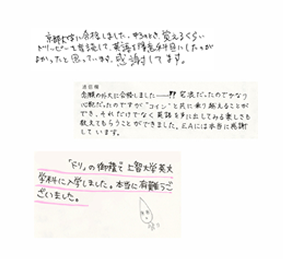 京都大学に合格しました。中3のとき、覚えるくらい
ドリーピーを音読して、英語を得意科目にしたのが
よかったと思っています。感謝してます。
通信欄
念願の外大に合格しました――!! 宅浪だったのでかなり
心配だったのですが"コイン"と共に乗り越えることが
でき、それだけでなく英語を手に出してみる楽しさも
教えてもらうことができました。EAには本当に感謝し
ています。
「ドリ」の御陰で上智大学英文
学科に入学しました。本当に有難うご
ざいました。